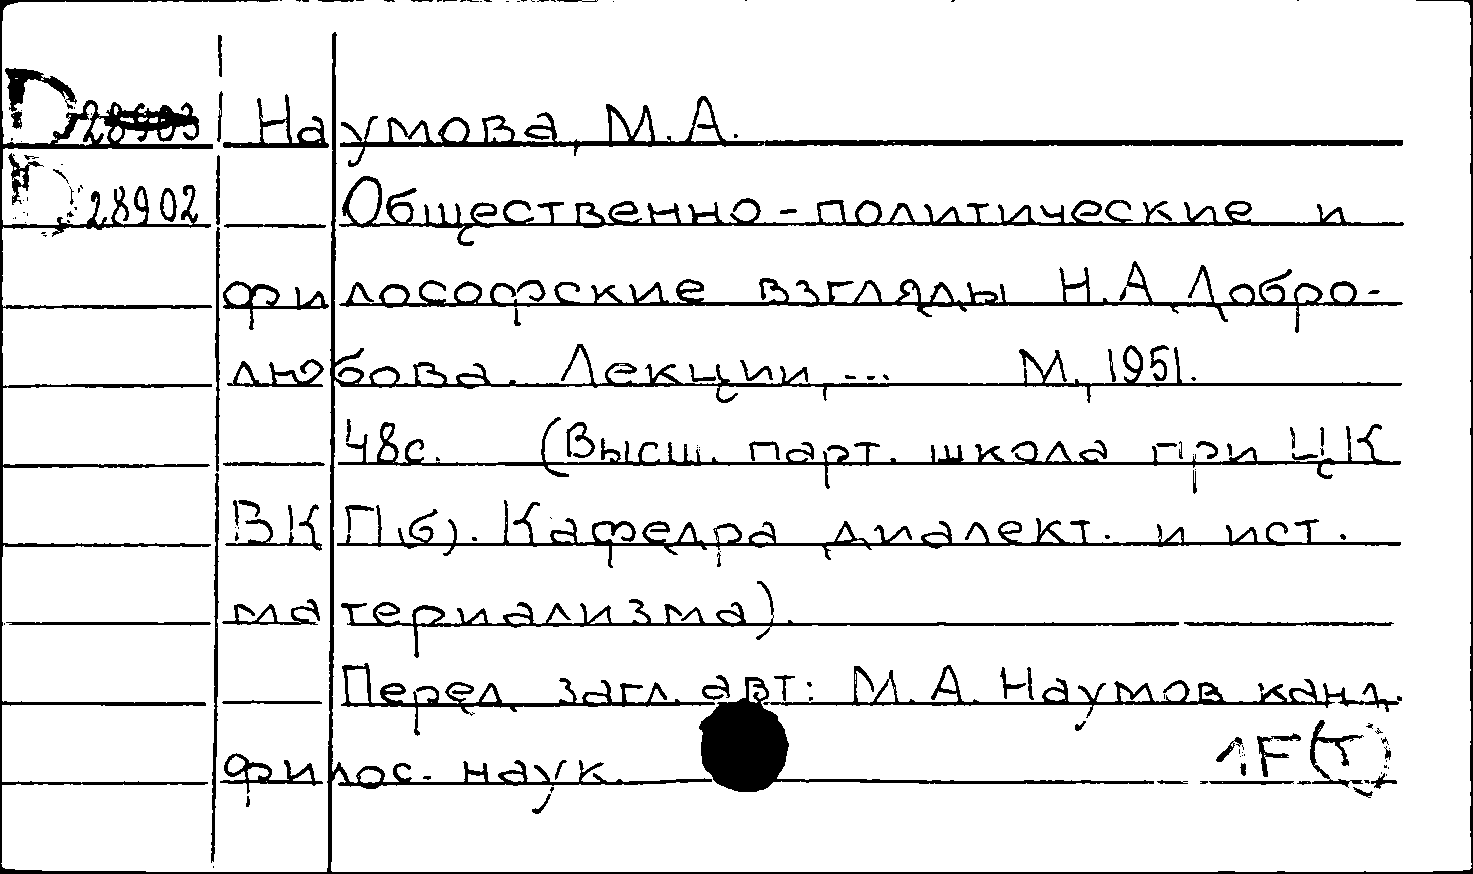 D 28903 Наумова, М.А.
D 28902 Общественно-политические и
философские взгляды Н.А. Добро-
любова. Лекции,... М., 1951.
48с. (Высш. парт. школа при ЦК
ВКП(б). Кафедра диалект. и ист.
материализма).
Перед загл. авт: М.А. Наумов канд.
филос. наук.
1F(T)